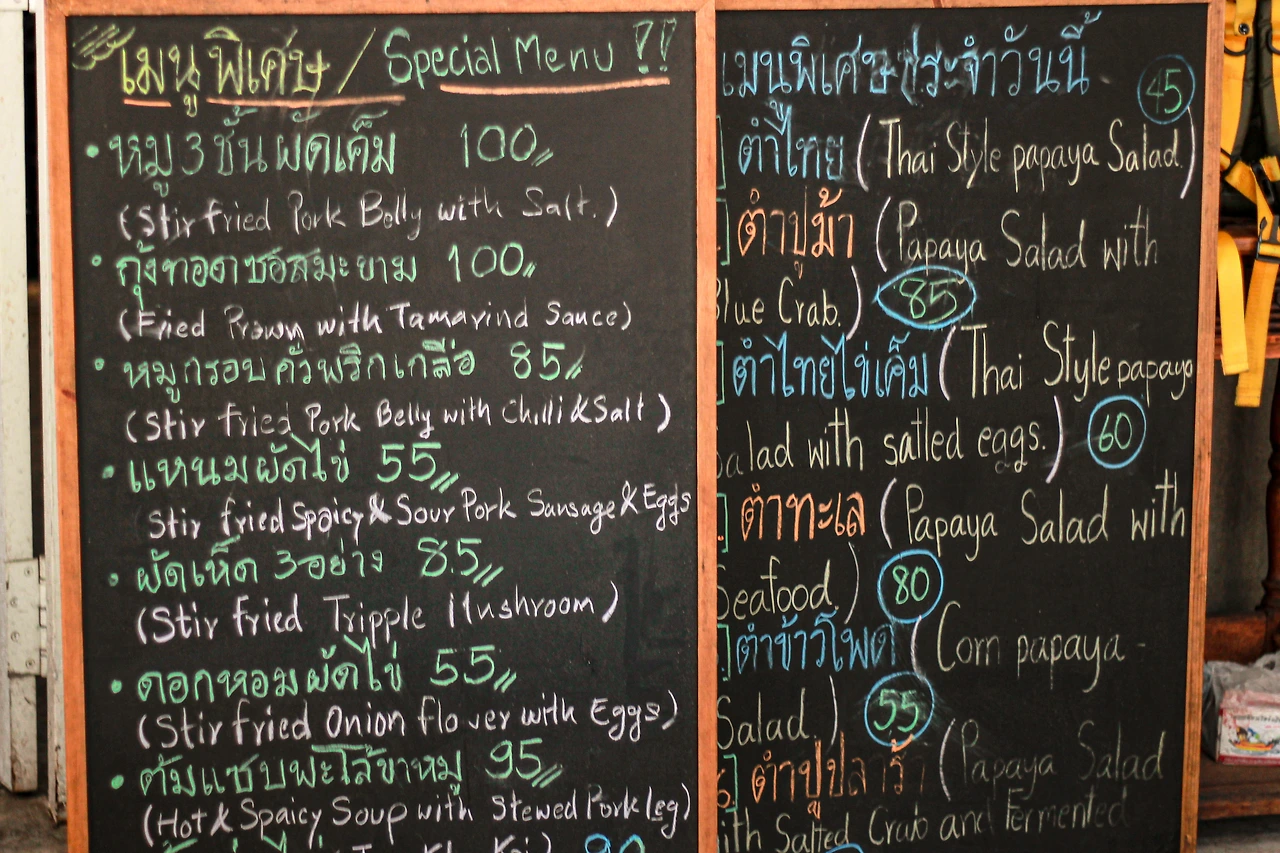 เมนูพิเศษ / Special Menu !!
• หมู 3 ชั้นผัดเค็ม 100
(Stir fried Pork Belly with Salt.)
• กุ้งทอดซอสมะขาม 100
(Fried Prawn with Tamarind Sauce)
• หมูกรอบคั่วพริกเกลือ 85
(Stir fried Pork Belly with Chilli & Salt)
• แหนมผัดไข่ 55
Stir fried Spaicy & Sour Pork Sansage & Eggs
• ผัดเห็ด 3 อย่าง 85
(Stir fried Tripple Mushroom)
• ดอกหอมผัดไข่ 55
(Stir fried Onion flower with Eggs)
• ต้มแซบพะโล้ขาหมู 95
(Hot & Spaicy Soup with Stewed Pork leg)
เมนูพิเศษประจำวันนี้
45
ตำไทย (Thai Style papaya Salad.)
ตำปูม้า (Papaya Salad with
Blue Crab.) 85
ตำไทยไข่เค็ม (Thai Style papaya
Salad with satled eggs.) 60
ตำทะเล (Papaya Salad with
Seafood) 80
ตำข้าวโพด (Corn papaya-
Salad.) 55
ตำปูปลาร้า (Papaya Salad
with Salted Crab and Fermented